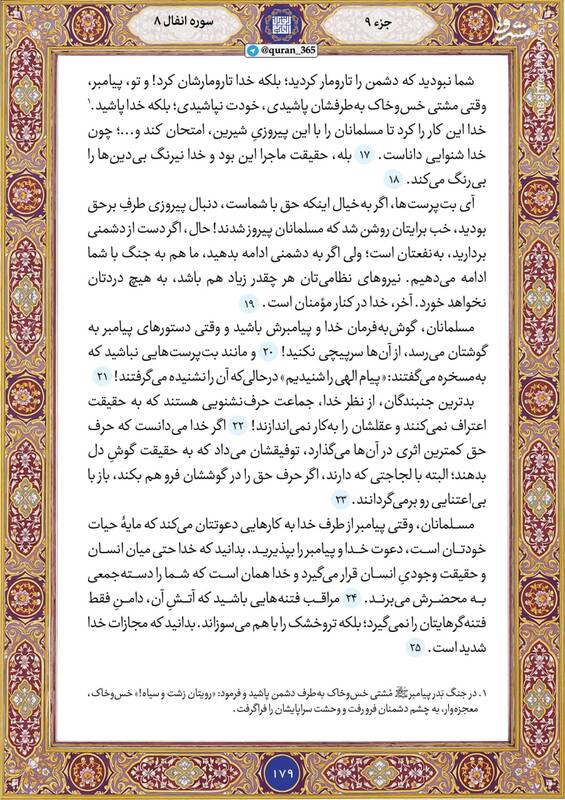 جزء ۹
سوره انفال ۸
@quran_365
شما نبودید که دشمن را تارومار کردید؛ بلکه خدا تارومارشان کرد! و تو، پیامبر،
وقتی مشتی خس‌وخاک به‌طرفشان پاشیدی، خودت نپاشیدی؛ بلکه خدا پاشید.۱
خدا این کار را کرد تا مسلمانان را با این پیروزیِ شیرین، امتحان کند و...؛ چون
خدا شنوایی داناست. ۱۷ بله، حقیقت ماجرا این بود و خدا نیرنگ بی‌دین‌ها را
بی‌رنگ می‌کند. ۱۸
آی بت‌پرست‌ها، اگر به‌خیال اینکه حق با شماست، دنبال پیروزی طرفِ برحق
بودید، خب برایتان روشن شد که مسلمانان پیروز شدند! حال، اگر دست از دشمنی
بردارید، به‌نفعتان است؛ ولی اگر به دشمنی ادامه بدهید، ما هم به جنگ با شما
ادامه می‌دهیم. نیروهای نظامی‌تان هر چقدر زیاد هم باشد، به هیچ دردتان
نخواهد خورد. آخر، خدا در کنار مؤمنان است. ۱۹
مسلمانان، گوش‌به‌فرمان خدا و پیامبرش باشید و وقتی دستورهای پیامبر به
گوشتان می‌رسد، از آن‌ها سرپیچی نکنید! ۲۰ و مانند بت‌پرست‌هایی نباشید که
به‌مسخره می‌گفتند: «پیام الهی را شنیدیم» درحالی‌که آن را نشنیده می‌گرفتند! ۲۱
بدترین جنبندگان، از نظر خدا، جماعت حرف‌نشنویی هستند که به حقیقت
اعتراف نمی‌کنند و عقلشان را به‌کار نمی‌اندازند! ۲۲ اگر خدا می‌دانست که حرف
حق کمترین اثری در آن‌ها می‌گذارد، توفیقشان می‌داد که به حقیقت گوشِ دل
بدهند؛ البته با لجاجتی که دارند، اگر حرف حق را در گوششان فرو هم بکند، باز با
بی‌اعتنایی رو برمی‌گردانند. ۲۳
مسلمانان، وقتی پیامبر از طرف خدا به کارهایی دعوتتان می‌کند که مایهٔ حیات
خودتان است، دعوت خدا و پیامبر را بپذیرید. بدانید که خدا حتی میان انسان
و حقیقت وجودیِ انسان قرار می‌گیرد و خدا همان است که شما را دسته‌جمعی
به محضرش می‌برند. ۲۴ مراقب فتنه‌هایی باشید که آتشِ آن، دامنِ فقط
فتنه‌گرهایتان را نمی‌گیرد؛ بلکه تروخشک را با هم می‌سوزاند. بدانید که مجازات خدا
شدید است. ۲۵
۱. در جنگ بَدر پیامبر ﷺ مُشتی خس‌وخاک به‌طرف دشمن پاشید و فرمود: «رویتان زشت و سیاه!» خس‌وخاک،
معجزه‌وار، به چشم دشمنان فرو رفت و وحشت سراپایشان را فراگرفت.
۱۷۹